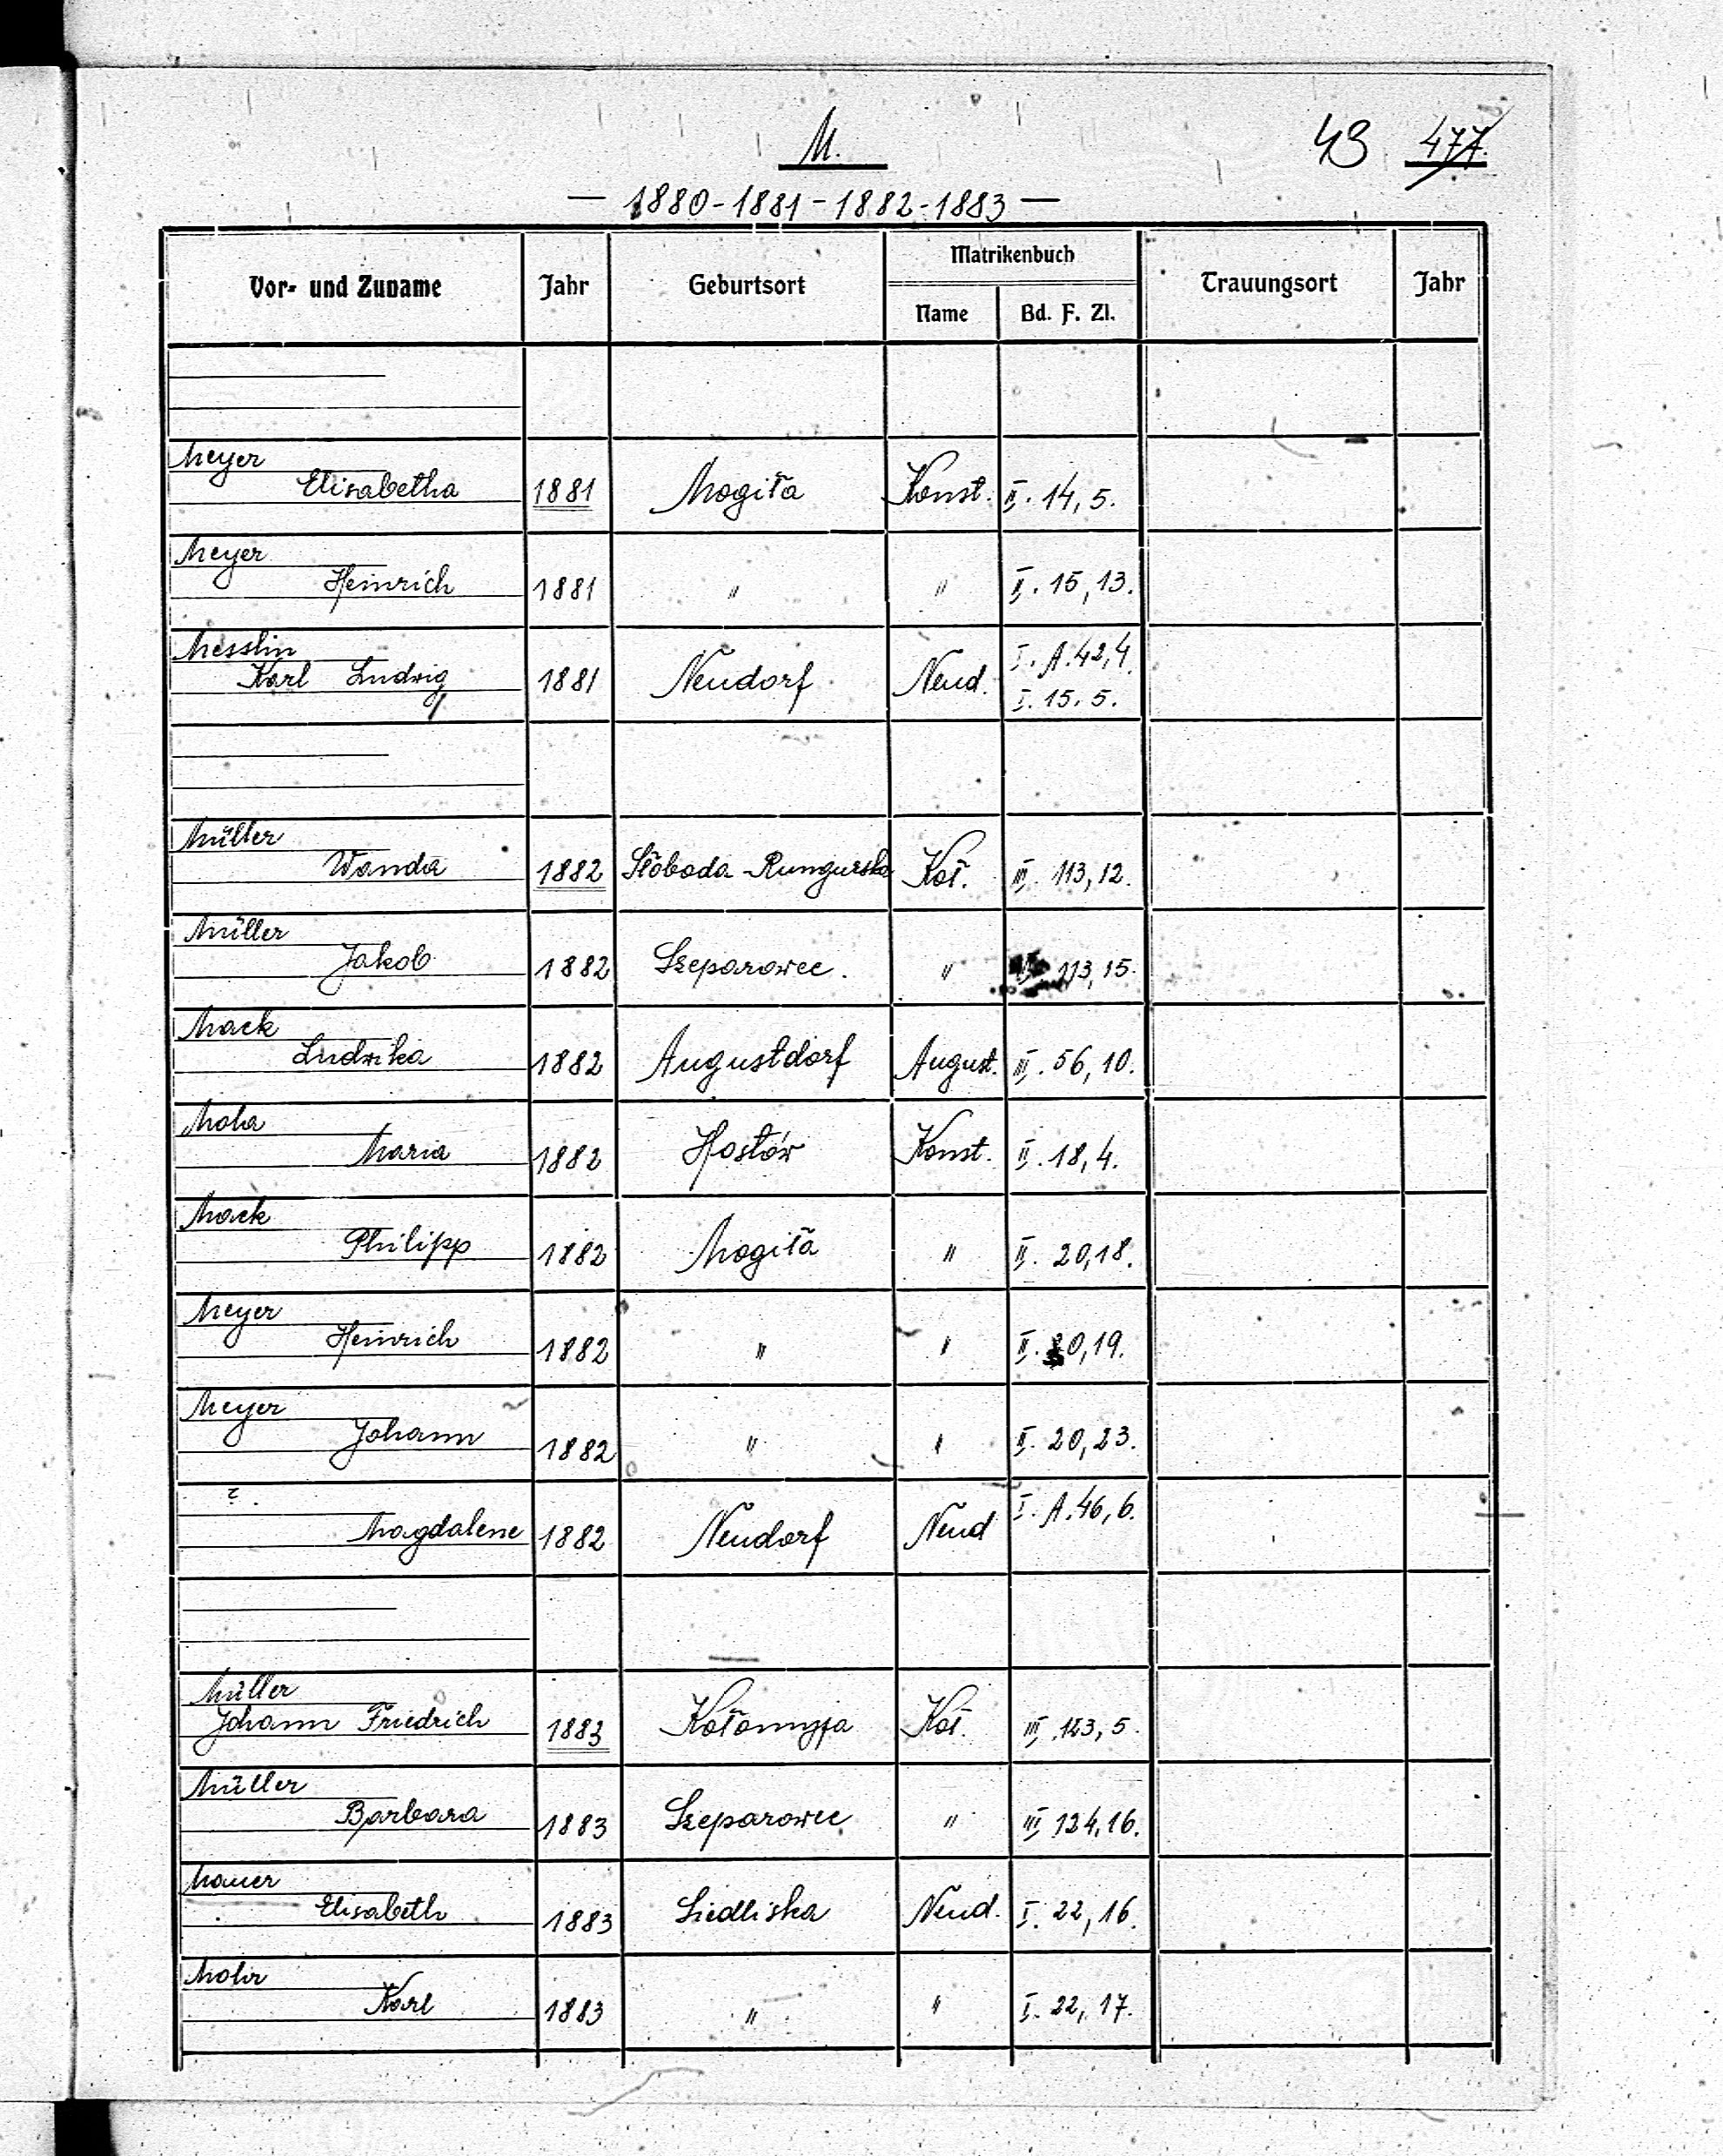 M.
43 477.
— 1880-1881-1882-1883 —
Vor- und Zuname Jahr Geburtsort Matrikenbuch Trauungsort Jahr
Name Bd. F. Zl.
Meyer
Elisabetha 1881 Mogiła Konst. II. 14, 5.
Meyer
Heinrich 1881 " " II. 15, 13.
Messlin I. A. 42, 4.
Karl Ludwig 1881 Neudorf Neud. I. 15. 5.
Müller
Wanda 1882 Słoboda-Rungurska Koł. III. 113, 12.
Müller
Jakob 1882 Szeparowce. " 113, 15.
Mack
Ludwika 1882 Augustdorf August. III. 56, 10.
Moha
Maria 1882 Hostów Konst. II. 18, 4.
Mack
Philipp 1882 Mogiła " II. 20, 18.
Meyer
Heinrich 1882 " " II. 20, 19.
Meyer
Johann 1882 " " II. 20, 23.
? I. A. 46, 6.
Magdalene 1882 Neudorf Neud
Müller
Johann Friedrich 1883 Kołomyja Koł. III. 123, 5.
Müller
Barbara 1883 Szeparowce " III 124, 16.
Mauer
Elisabeth 1883 Siedliska Neud. I. 22, 16.
Mohr
Karl 1883 " " I. 22, 17.